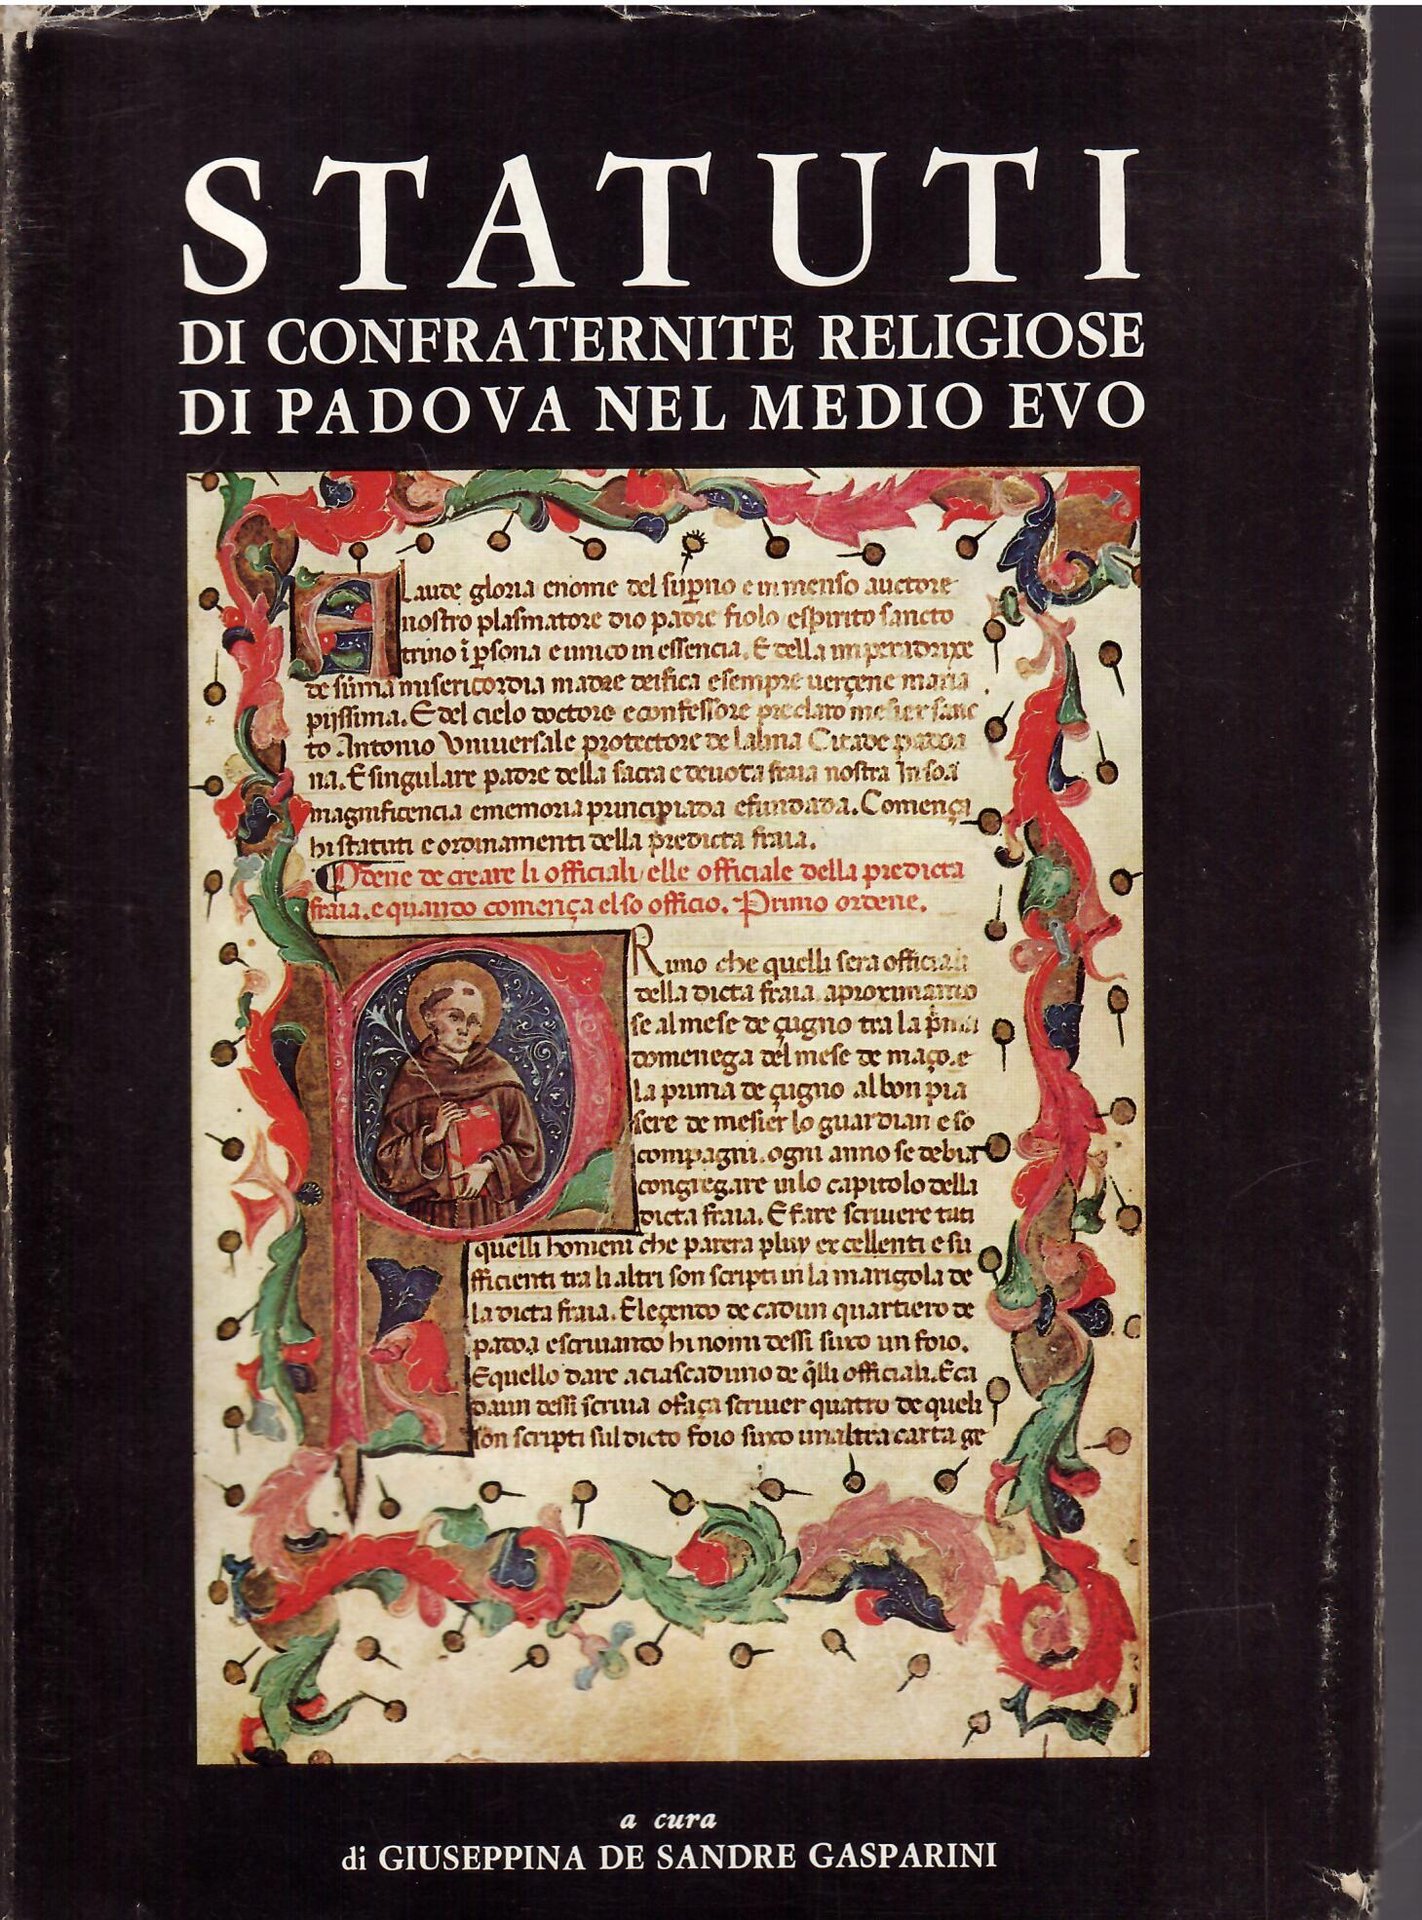 STATUTI
DI CONFRATERNITE RELIGIOSE
DI PADOVA NEL MEDIO EVO
A Laude gloria enome del sup̱no e in menso auctore
nostro plasmatore dio padre fiolo espirito sancto
trino ī p̱sona e unico in essencia. E della imperadrixe
de sūma misericordia madre deifica e sempre uerçene maria
pijssima. E del cielo doctore e confessore preclaro mesier sanc
to Antonio Vniuersale protectore de lalma Citade padoa
na. E singulare padre della sacra e deuota fraia nostra In soa
magnificencia ememoria principiada efundada. Comença
hi statuti e ordinamenti della predicta fraia.
Odene de creare li officiali elle officiale della predicta
fraia. e quando comença el so officio. Primo ordene.
PRimo che quelli sera officiali
della dicta fraia aproximando
se al mese de çugno tra la p̄ma
domenega del mese de maço. e
la prima de çugno al bon pia
sere de mesier lo guardian e so
compagni. ogni anno se debia
congregare in lo capitolo della
dicta fraia. E fare scriuere tuti
quelli homeni che parera pluy excellenti e su
fficienti tra li altri son scripti in la marigola de
la dicta fraia. Eleçendo de cadun quartiero de
padoa e scriuando hi nomi dessi suxo un foio.
E quello dare a ciascaduno de q̄lli officiali. E ca
daun dessi scriua o faça scriuer quatro de queli
son scripti sul dicto foio suxo un altra carta ge
a cura
di GIUSEPPINA DE SANDRE GASPARINI